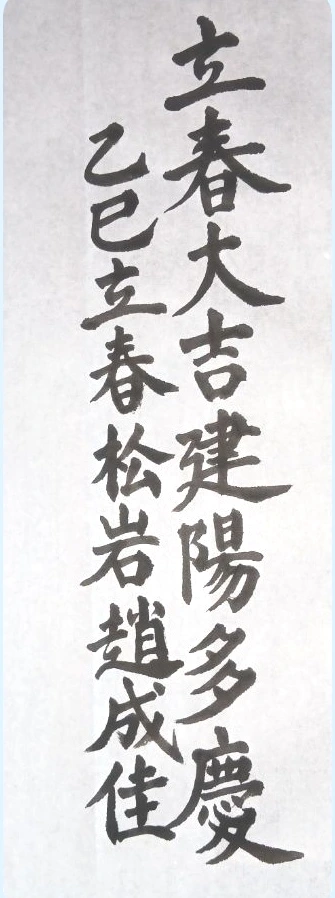 立春大吉建陽多慶
乙巳立春松岩趙成佳